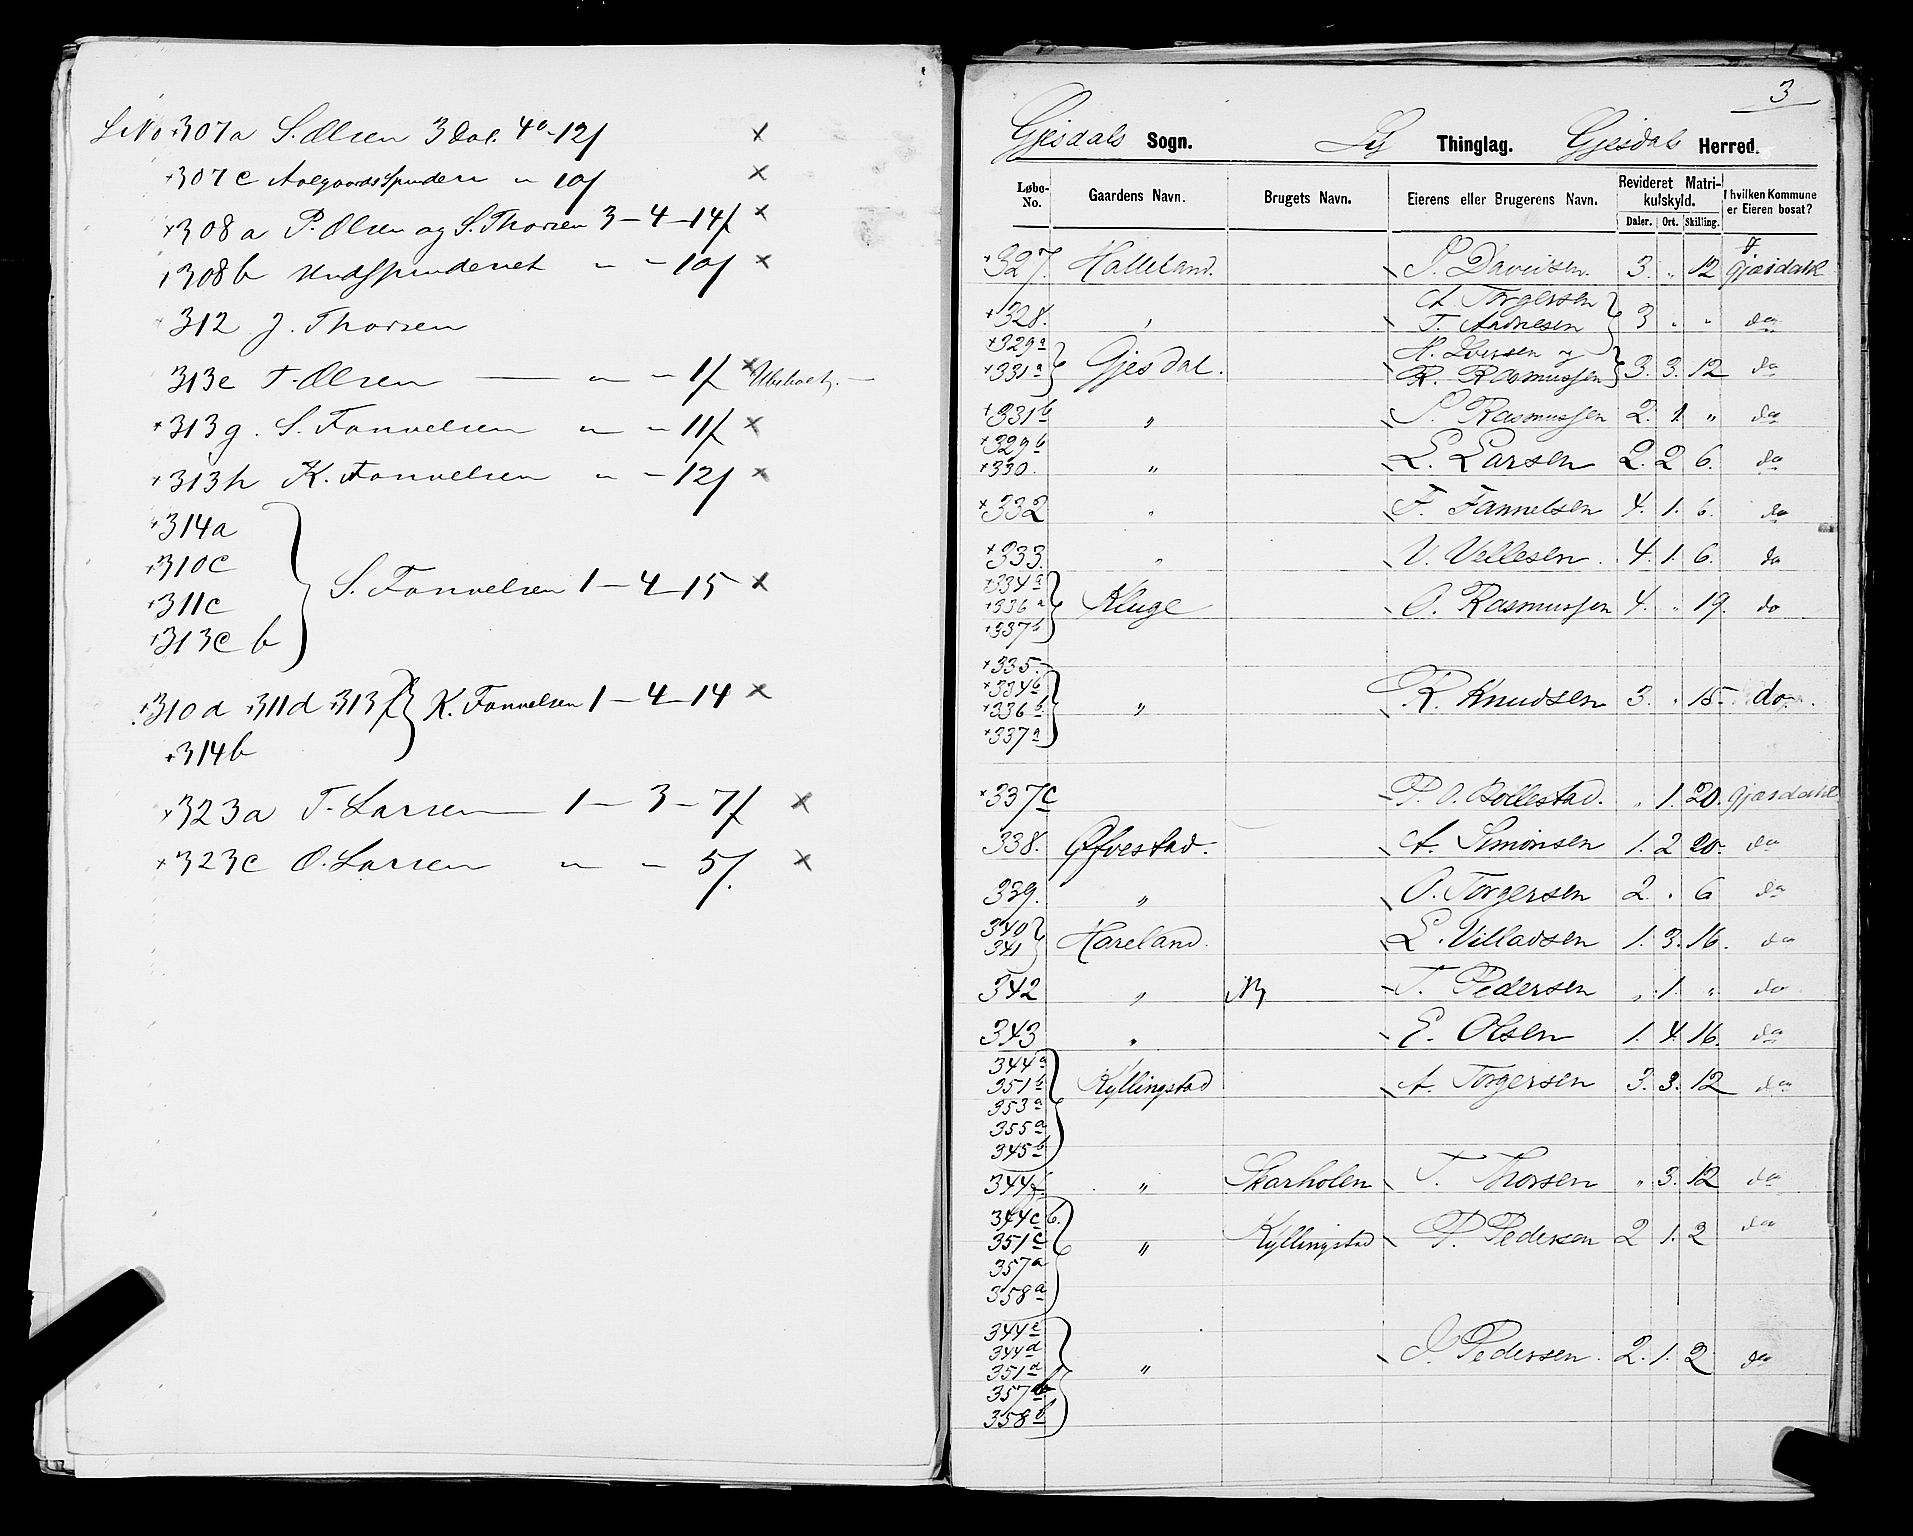 L No +307a S. Olsen 3 Dal. 4o-12f x
+307c Aalgaards Spinderi " 10f x
+308a P. Olsen og S. Thorsen 3-4-14f x
+308b Uldspinderiet " - 10f x
312 J. Thorsen
313e T. Olsen — " - 1f x
+313g. S. Fanuelsen " - 11f x
+313h K. Fanuelsen " - 12f x
+314a
+310c
+311c S. Fanuelsen 1-4-15 x
+313c b
+310d +311d +313f K. Fanuelsen 1-4-14 x
+314b
+323a T. Larsen 1-3-7f x
+323c O. Larsen " - 5f. x
3
Gjesdals Sogn. Thinglag. Gjesdals Herred.
Løbe-No. Gaardens Navn. Brugets Navn. Eierens eller Brugerens Navn. Revideret Matrikulskyld. I hvilken Kommune er Eieren bosat?
Daler. Ort. Skilling.
+327. Halleland. S. Davidsen. 3. " 12 Gjæsdahl
+328. " A. Torgersen
T. Aadnesen 3 " " do
+329a Gjesdal. H. Iversen og
+331a R. Rasmussen 3. 3. 12 do
+331b " S. Rasmussen 2. 1. " do
+329b
+330. " L. Larsen 2. 2 6. do
+332 " F. Fannelsen 4. 1. 6. do
+333. " V. Vellesen. 4. 1. 6. do
+334a
+336a Kluge O. Rasmussen 4. " 19. do
+337b
+335.
+334b
+336b " R. Knudsen 3. " 15. do
+337a
+337c P. O. Bollestad. " 1. 20. Gjæsdahl
338. Øfvestad. A. Simonsen 1. 2 20. do
339. " O. Torgersen 2. " 6 do
340
341 Hareland. L. Villadsen 1. 3. 16. do
342 " T. Pedersen " 1. " do
343 " E. Olsen 1. 4. 16. do
344a
351b Kyllingstad A. Torgersen 3. 3. 12 do
353a
355a
345b
344f. " Skarholen T. Thorsen " 3. 12 do
344c b.
351c " Kyllingstad P. Pedersen 2 1. 2 do
357a
358a
344e
344d
351d " J. Pedersen. 2. 1. 2 do
357b
358b